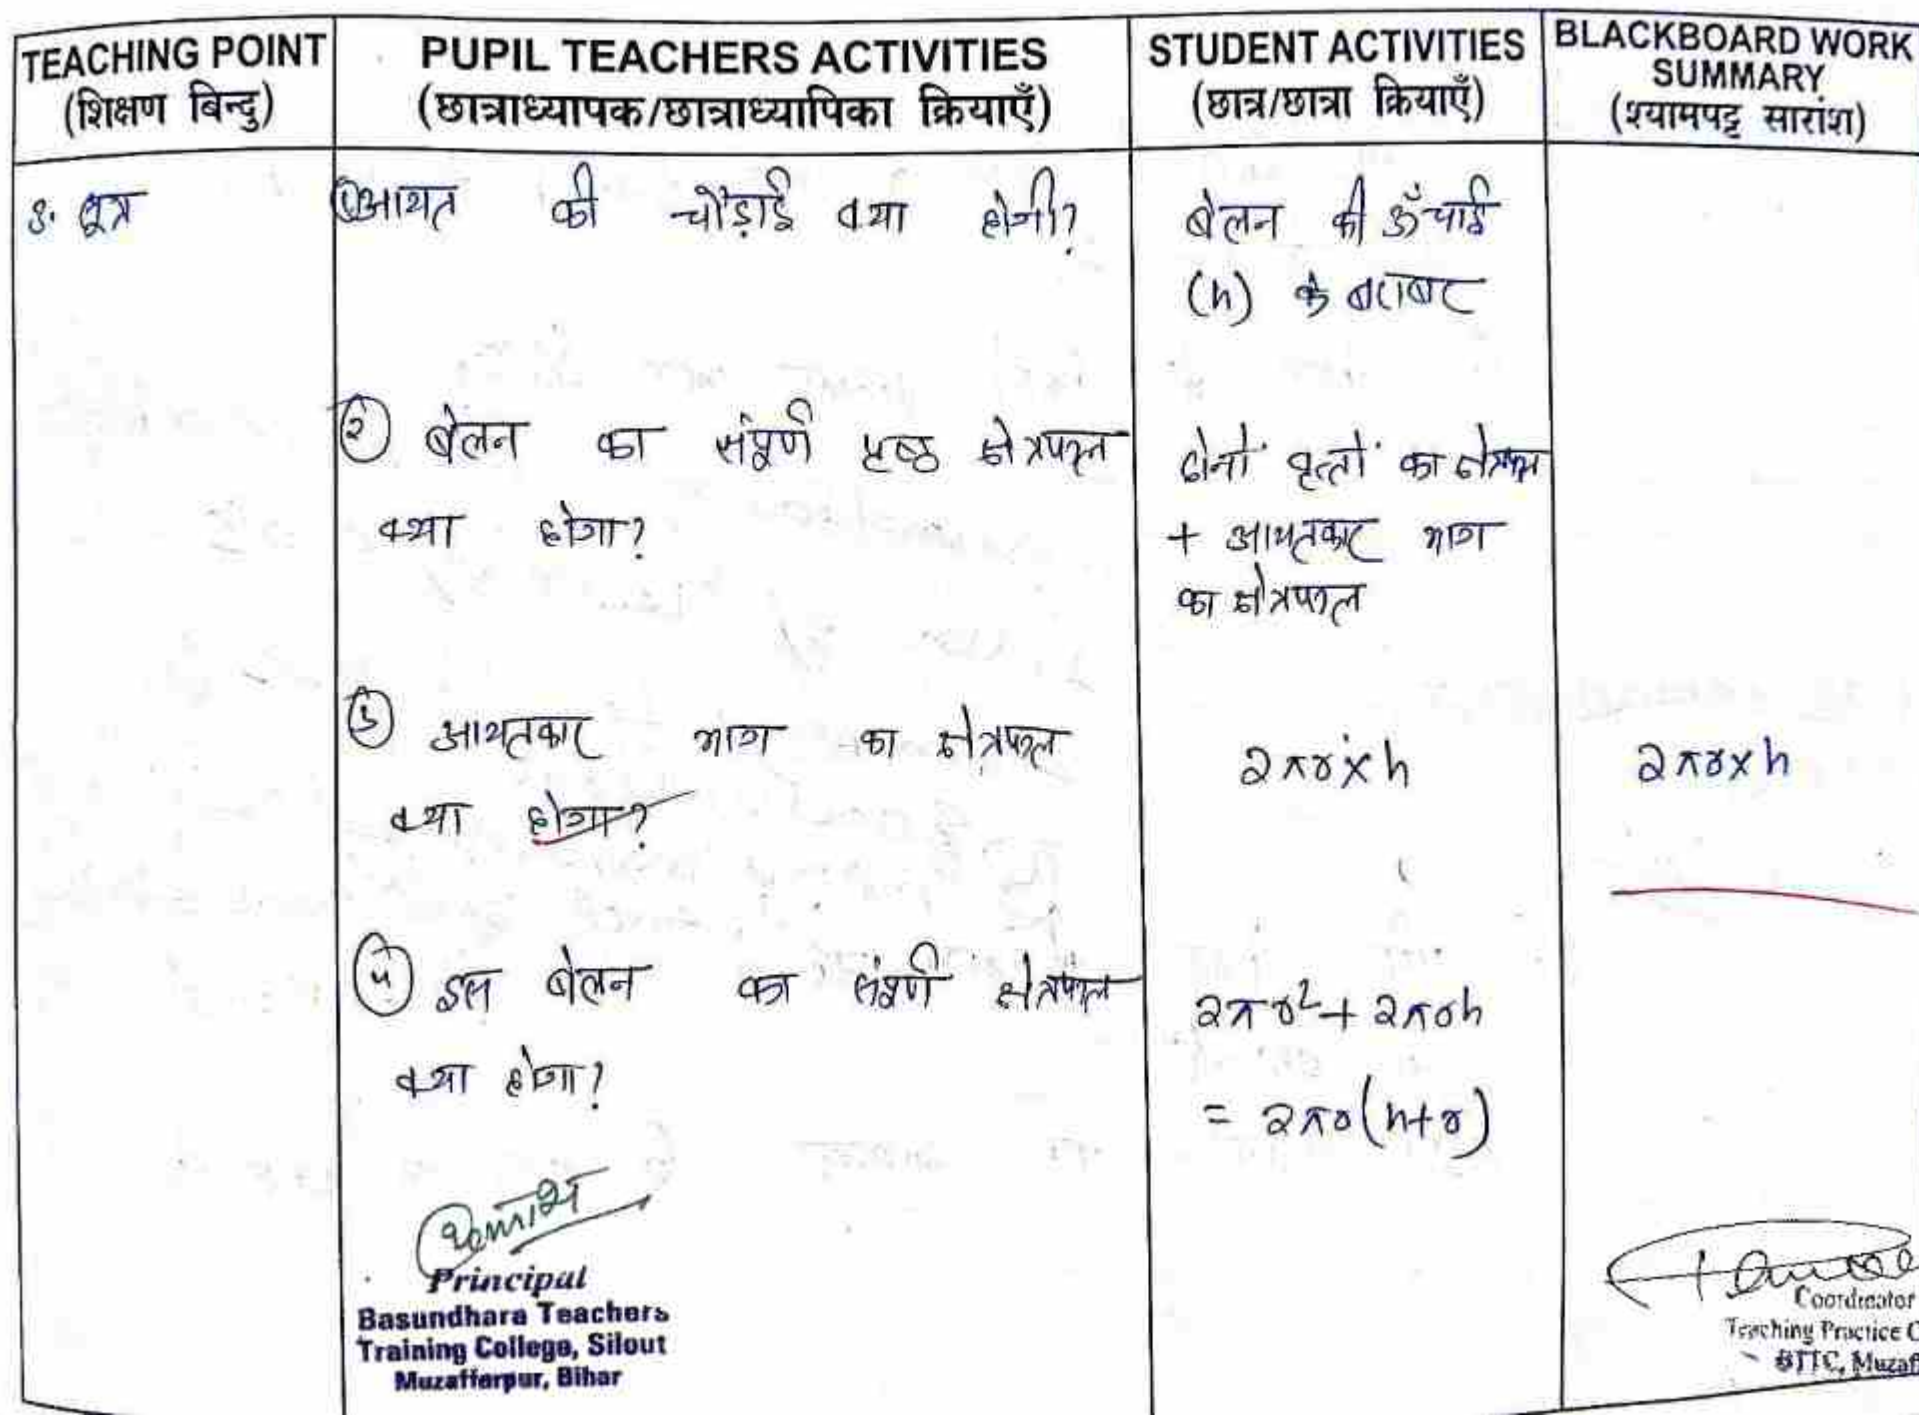 TEACHING POINT
(शिक्षण बिन्दु)
PUPIL TEACHERS ACTIVITIES
(छात्राध्यापक/छात्राध्यापिका क्रियाएँ)
STUDENT ACTIVITIES
(छात्र/छात्रा क्रियाएँ)
BLACKBOARD WORK
SUMMARY
(श्यामपट्ट सारांश)
3. सूत्र
① आयत की चौड़ाई क्या होगी?
बेलन की ऊँचाई
(h) के बराबर
② बेलन का संपूर्ण पृष्ठ क्षेत्रफल
क्या होगा?
दोनों वृत्तों का क्षेत्रफल
+ आयतकार भाग
का क्षेत्रफल
③ आयतकार भाग का क्षेत्रफल
क्या होगा?
2πr×h
2πr×h
④ इस बेलन का संपूर्ण क्षेत्रफल
क्या होगा?
2πr²+2πrh
= 2πr(h+r)
Principal
Basundhara Teachers
Training College, Silout
Muzafferpur, Bihar
Coordinator
Teaching Practice C
BTTC, Muzaff